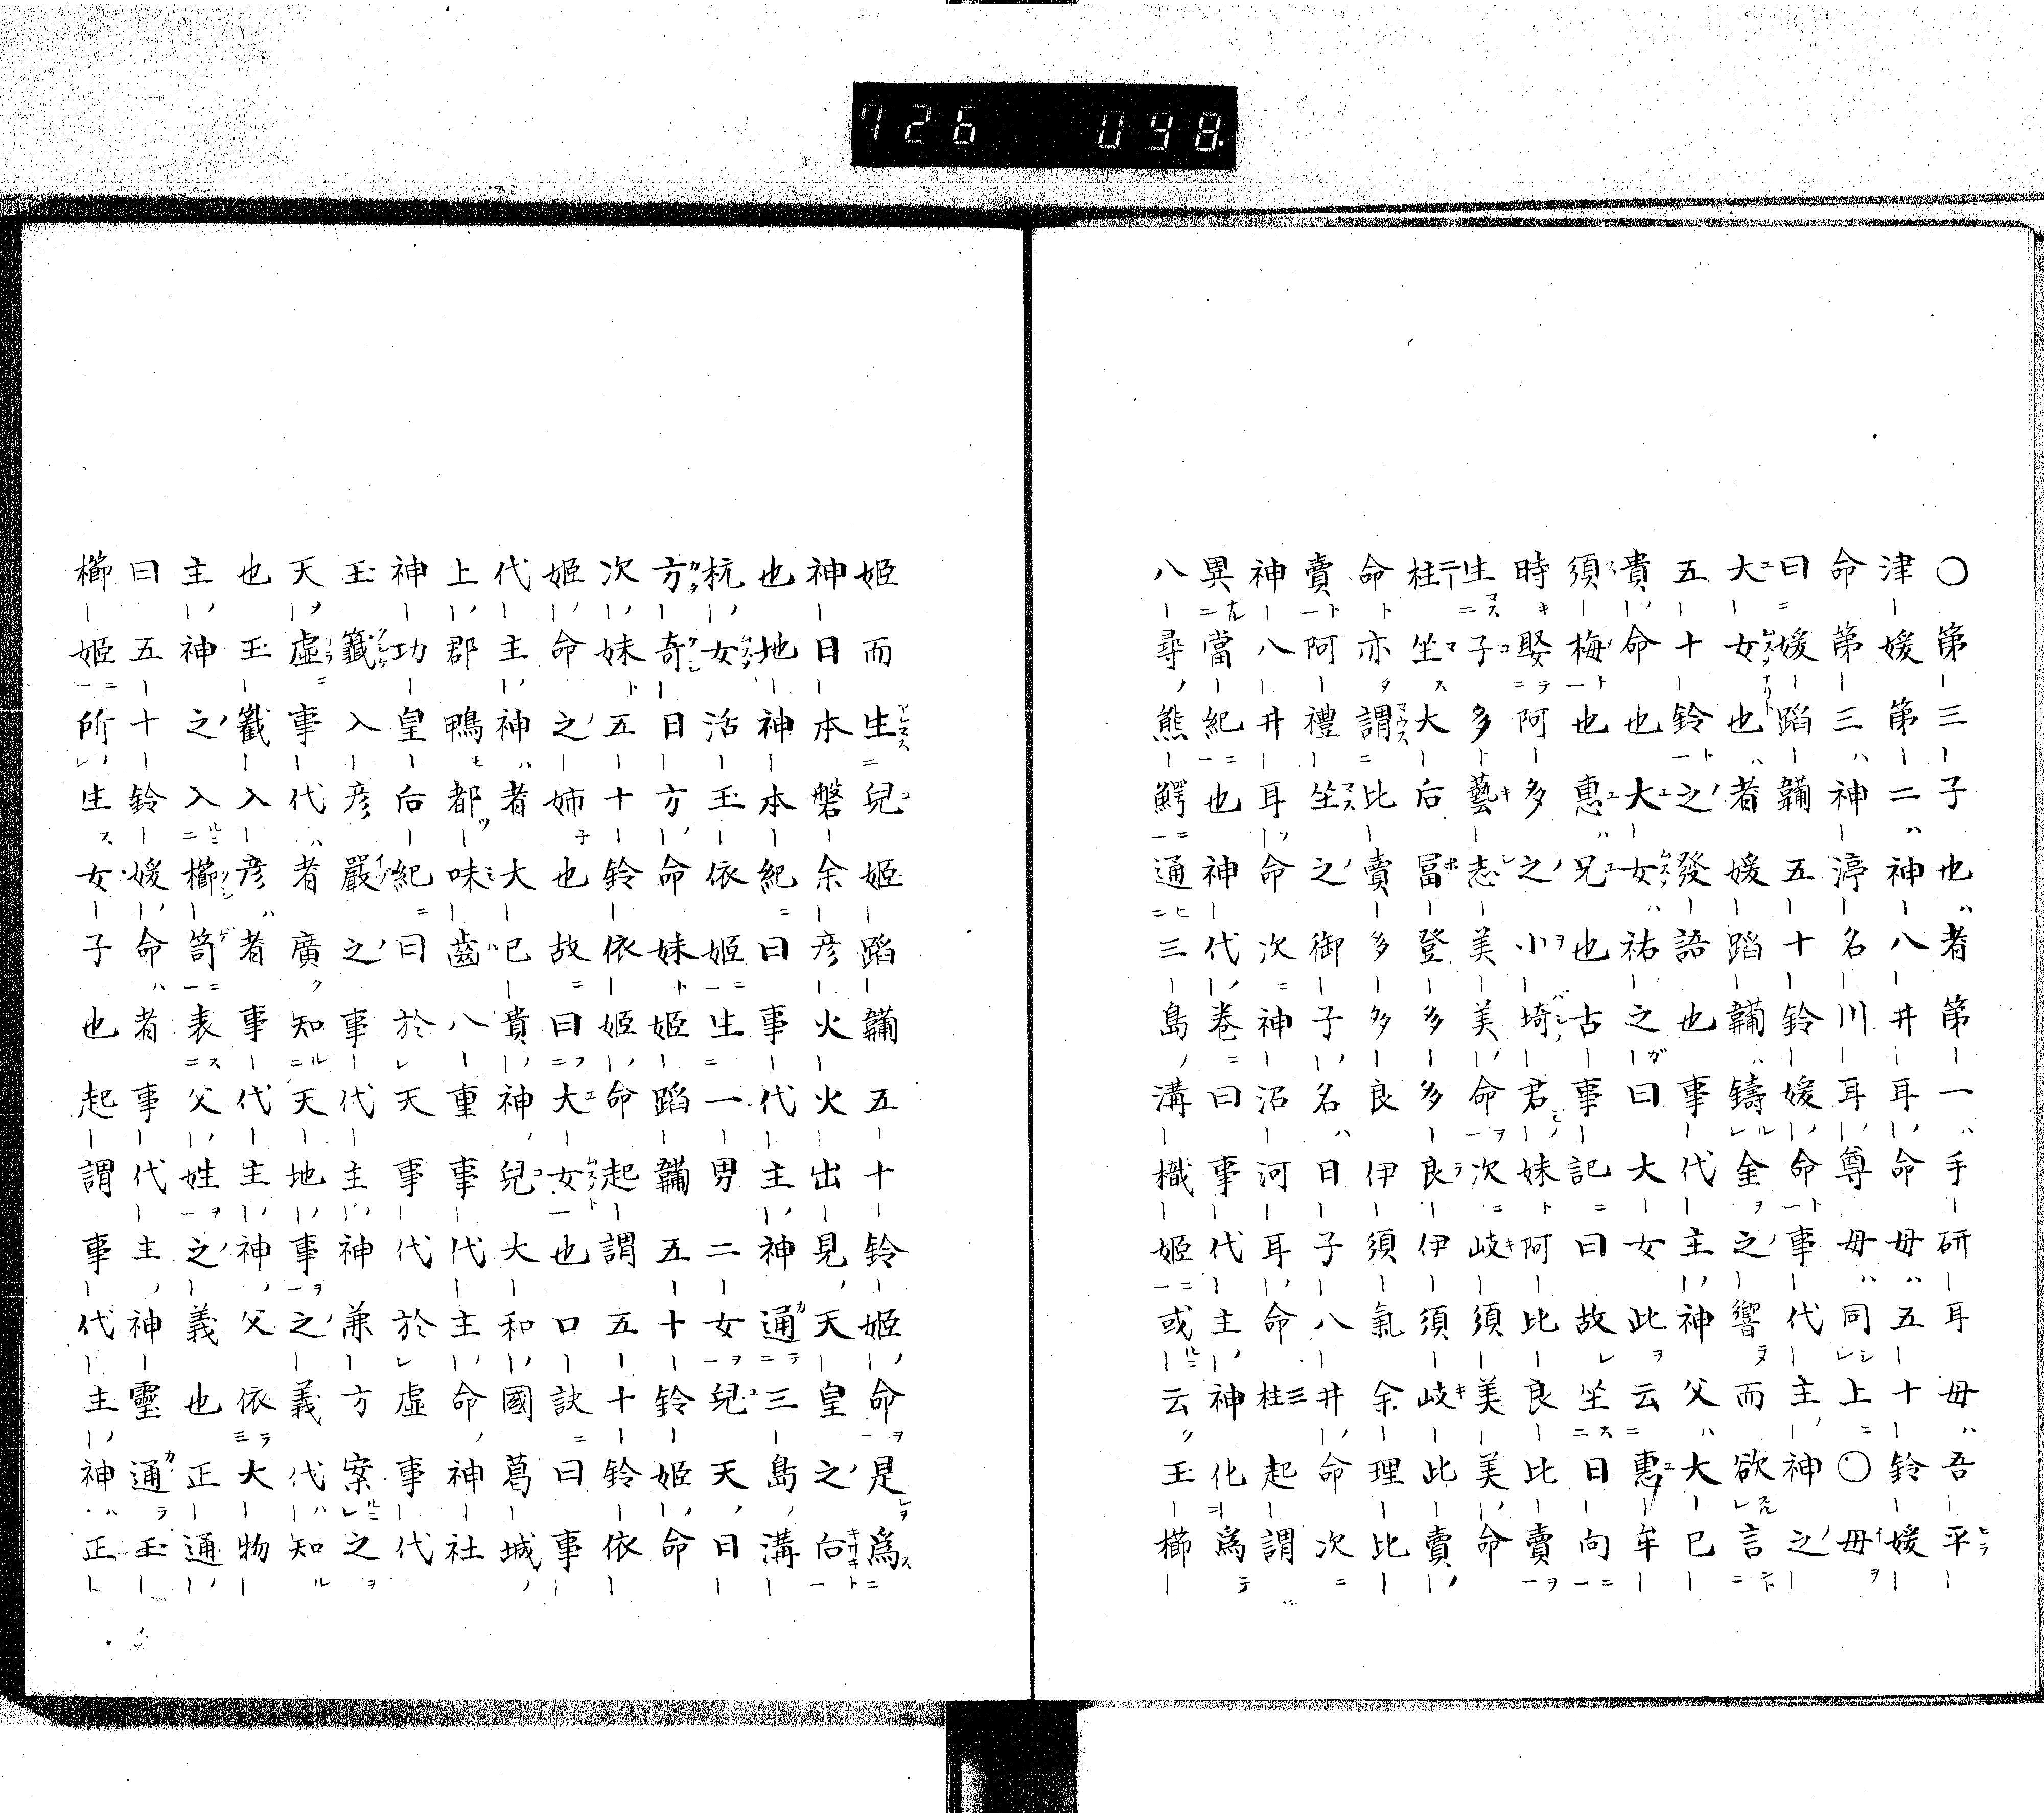 726 098
〇第三子也者第一手研耳母吾平
津媛第二神八井耳命母五十鈴媛
命第三神渟名川耳尊母同上〇母
曰媛蹈鞴五十鈴媛命事代主神之
大女也者媛蹈鞴鑄金之響而欲言
五十鈴之發語也事代主神父大已
貴命也大女祐之曰大女此云惠牟
須梅也惠兄也古事記曰故坐日向
時娶阿多之小埼君妹阿比良比賣
生子多藝志美美命次岐須美美命二
柱坐大后冨登多多良伊須岐此賣
命亦謂比賣多多良伊須氣余理比
賣阿禮坐之御子名日子八井命次
神八井耳命次神沼河耳命三柱起謂
異當紀也神代卷曰事代主神化爲
八尋熊鰐通三島溝樴姫或云玉櫛
姫而生兒姫蹈鞴五十鈴姫命是爲
神日本磐余彦火火出見天皇之后
也地神本紀曰事代主神通三島溝
杭女活玉依姫生一男二女兒天日
方奇日方命妹姫蹈鞴五十鈴姫命
次妹五十鈴依姫命起謂五十鈴依
姫命之姉也故曰大女也口訣曰事
代主神者大已貴神兒大和國葛城
上郡鴨都味齒八重事代主命神社
神功皇后紀曰於天事代於虛事代
玉籤入彦嚴之事代主神兼方案之
天虛事代者廣知天地事之義代知
也玉籤入彦者事代主神父依大物
主神之入櫛笥表父姓之義也正通
曰五十鈴媛命者事代主神靈通玉
櫛姫所生女子也起謂事代主神正